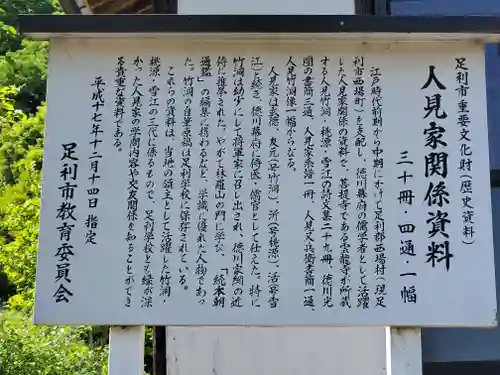 足利市重要文化財(歴史資料)
人見家関係資料
三十冊・四通・一幅
江戸時代前期から中期にかけて足利郡西場村(現足
利市西場町)を支配し、徳川幕府の儒学者として活躍
した人見家関係の資料で、菩提寺である雲龍寺が所蔵
する人見竹洞・桃源・雪江の詩文集二十九冊、徳川光
圀の書簡三通、人見家系譜一冊、人見又兵衛書簡一通、
人見竹洞像一幅からなる。
人見家は玄徳、友元(号竹洞)、沂(号桃源)、活(号雪
江)と続き、徳川幕府に侍医、儒者として仕えた。特に
竹洞は幼少にして将軍家に召し出され、徳川家綱の近
侍に推挙された。やがて林羅山の門に学び、「続本朝
通鑑」の編集に携わるなど、学識に優れた人物であっ
た。竹洞の自筆原稿は足利学校に保存されている。
これらの資料は、当地の領主として活躍した竹洞、
桃源・雪江の三代に係るもので、足利学校とも縁が深
かった人見家の学問内容や交友関係を知ることができ
る貴重な資料である。
平成十七年十二月十四日 指定
足利市教育委員会